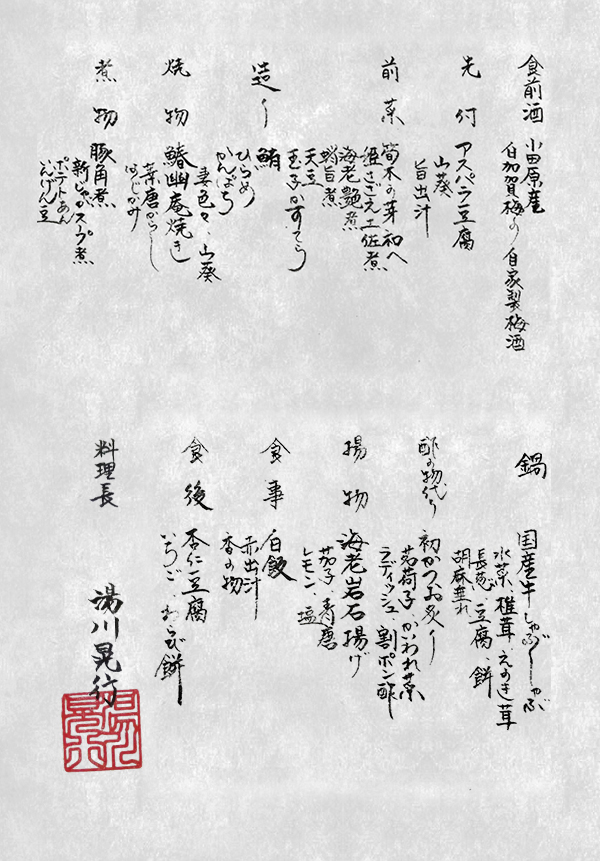 食前酒 小田原産
白加賀梅の自家製梅酒
先付 アスパラ豆腐
山葵
旨出汁
前菜 筍木の芽和へ
姫さざえ土佐煮
海老艶煮
蛸旨煮
天豆
玉子かすてら
造り 鮪
ひらめ
かんぱち
妻色々、山葵
焼物 鰆幽庵焼き
葉唐からし
はじかみ
煮物 豚角煮
新じゃがスープ煮
ポテトあん
いんげん豆
鍋 国産牛しゃぶしゃぶ
水菜、椎茸、えのき茸
長葱、豆腐、餅
胡麻垂れ
酢の物代り 初かつお炙り
茗荷子、かいわれ菜
ラディッシュ、割ポン酢
揚物 海老岩石揚げ
茄子、青唐
レモン、塩
食事 白飯
赤出汁
香の物
食後 杏仁豆腐
いちご、わらび餅
料理長 湯川晃行